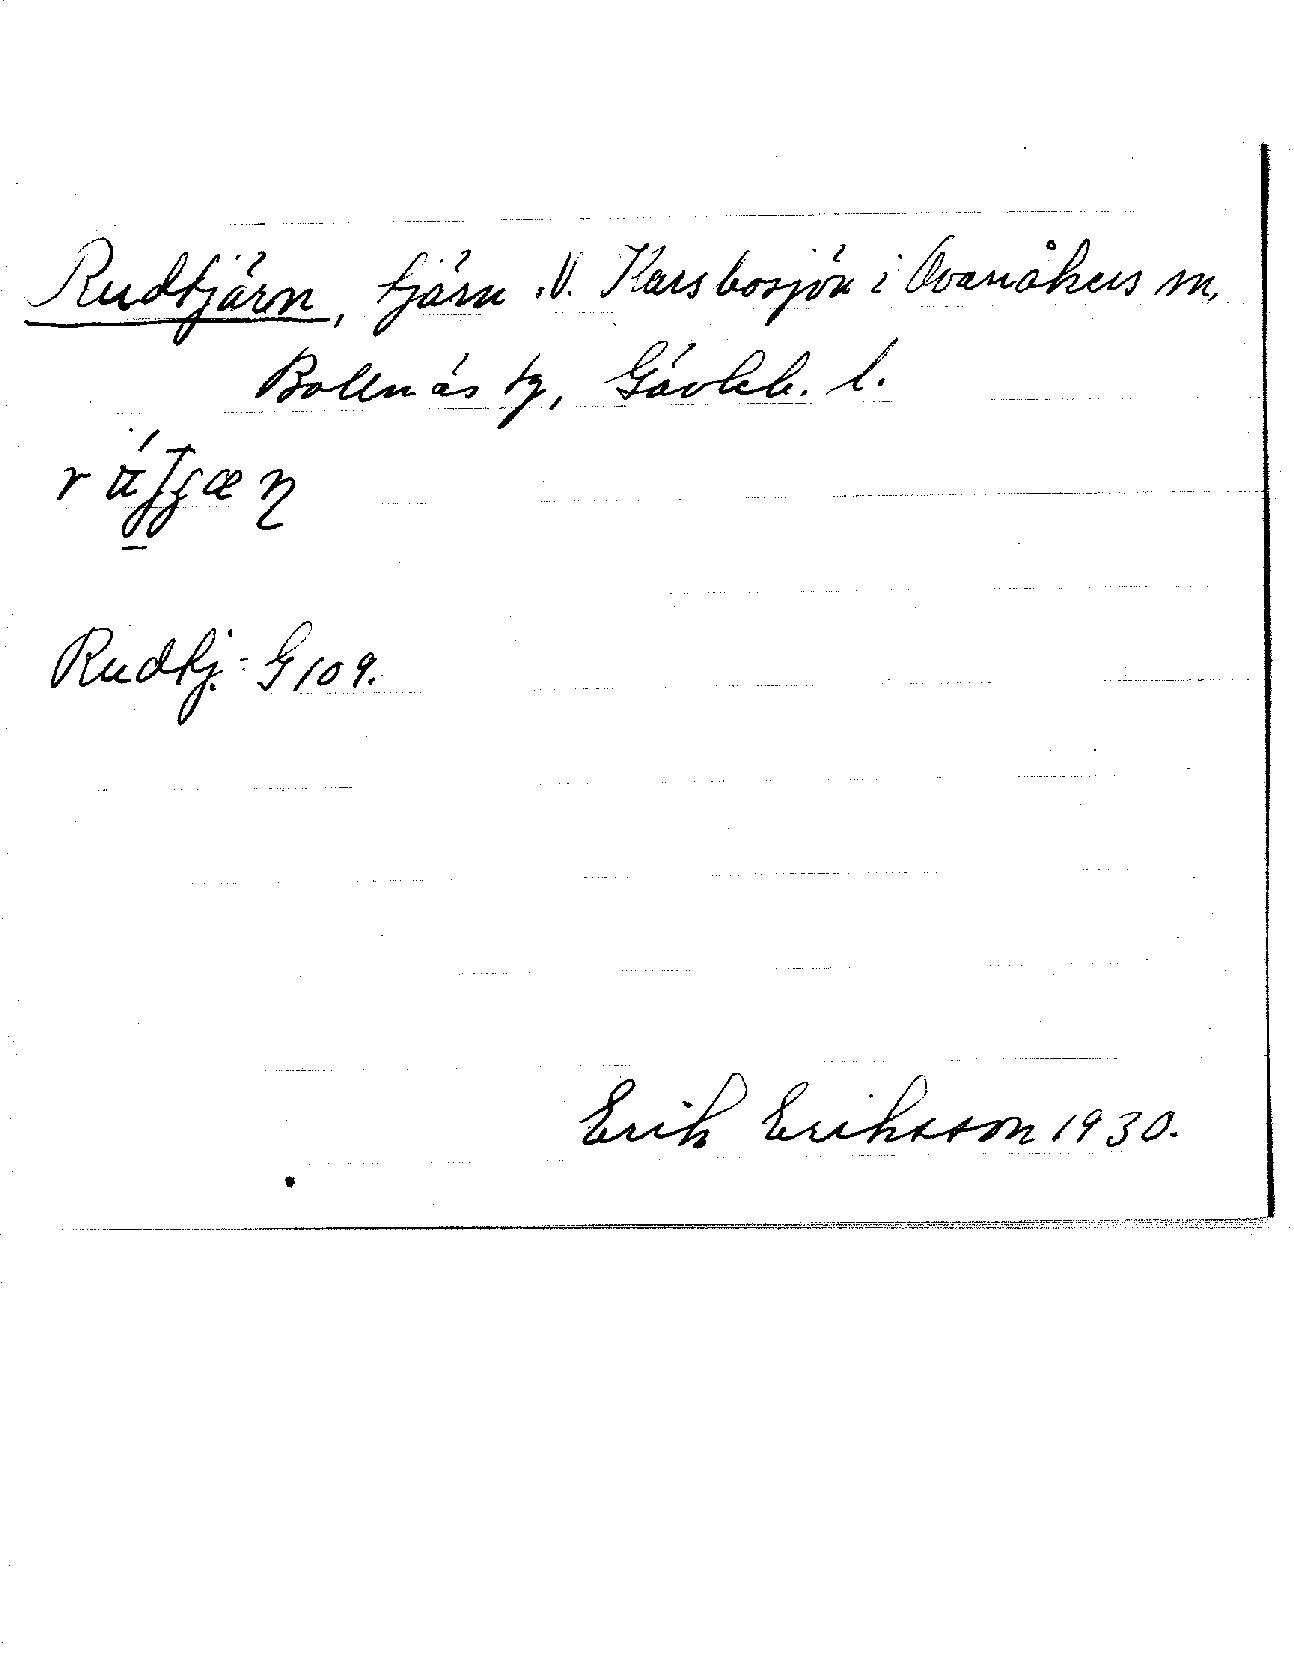 Rudtjärn, tjärn V. Karsbosjön i Ovanåkers sn,
Bollnäs tg, Gävleb. l.
Rudtj. G 109.
Erik Eriksson 1930.